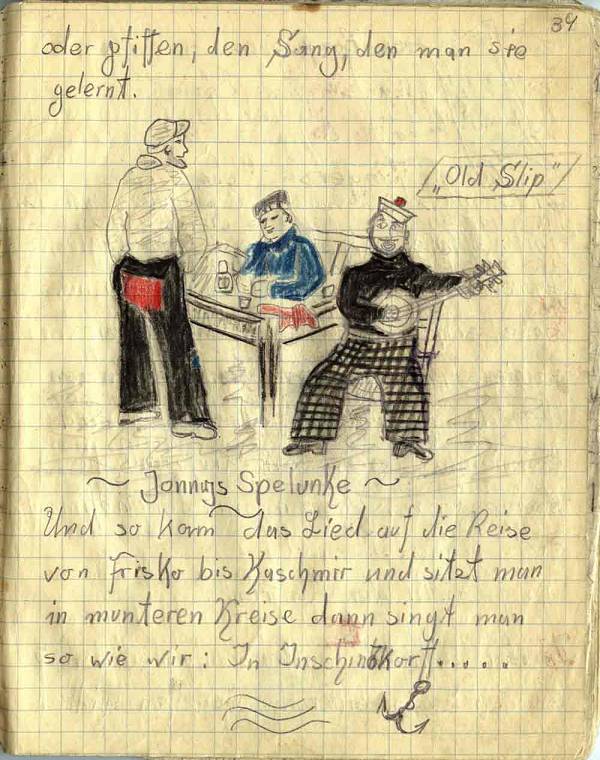 34
oder pfiffen, den Sang, den man sie
gelernt.
„Old Slip"
~ Jonnys Spelunke ~
Und so kam das Lied auf die Reise
von Frisko bis Kaschmir und sitzt man
in munteren Kreise dann singt man
so wie wir: In